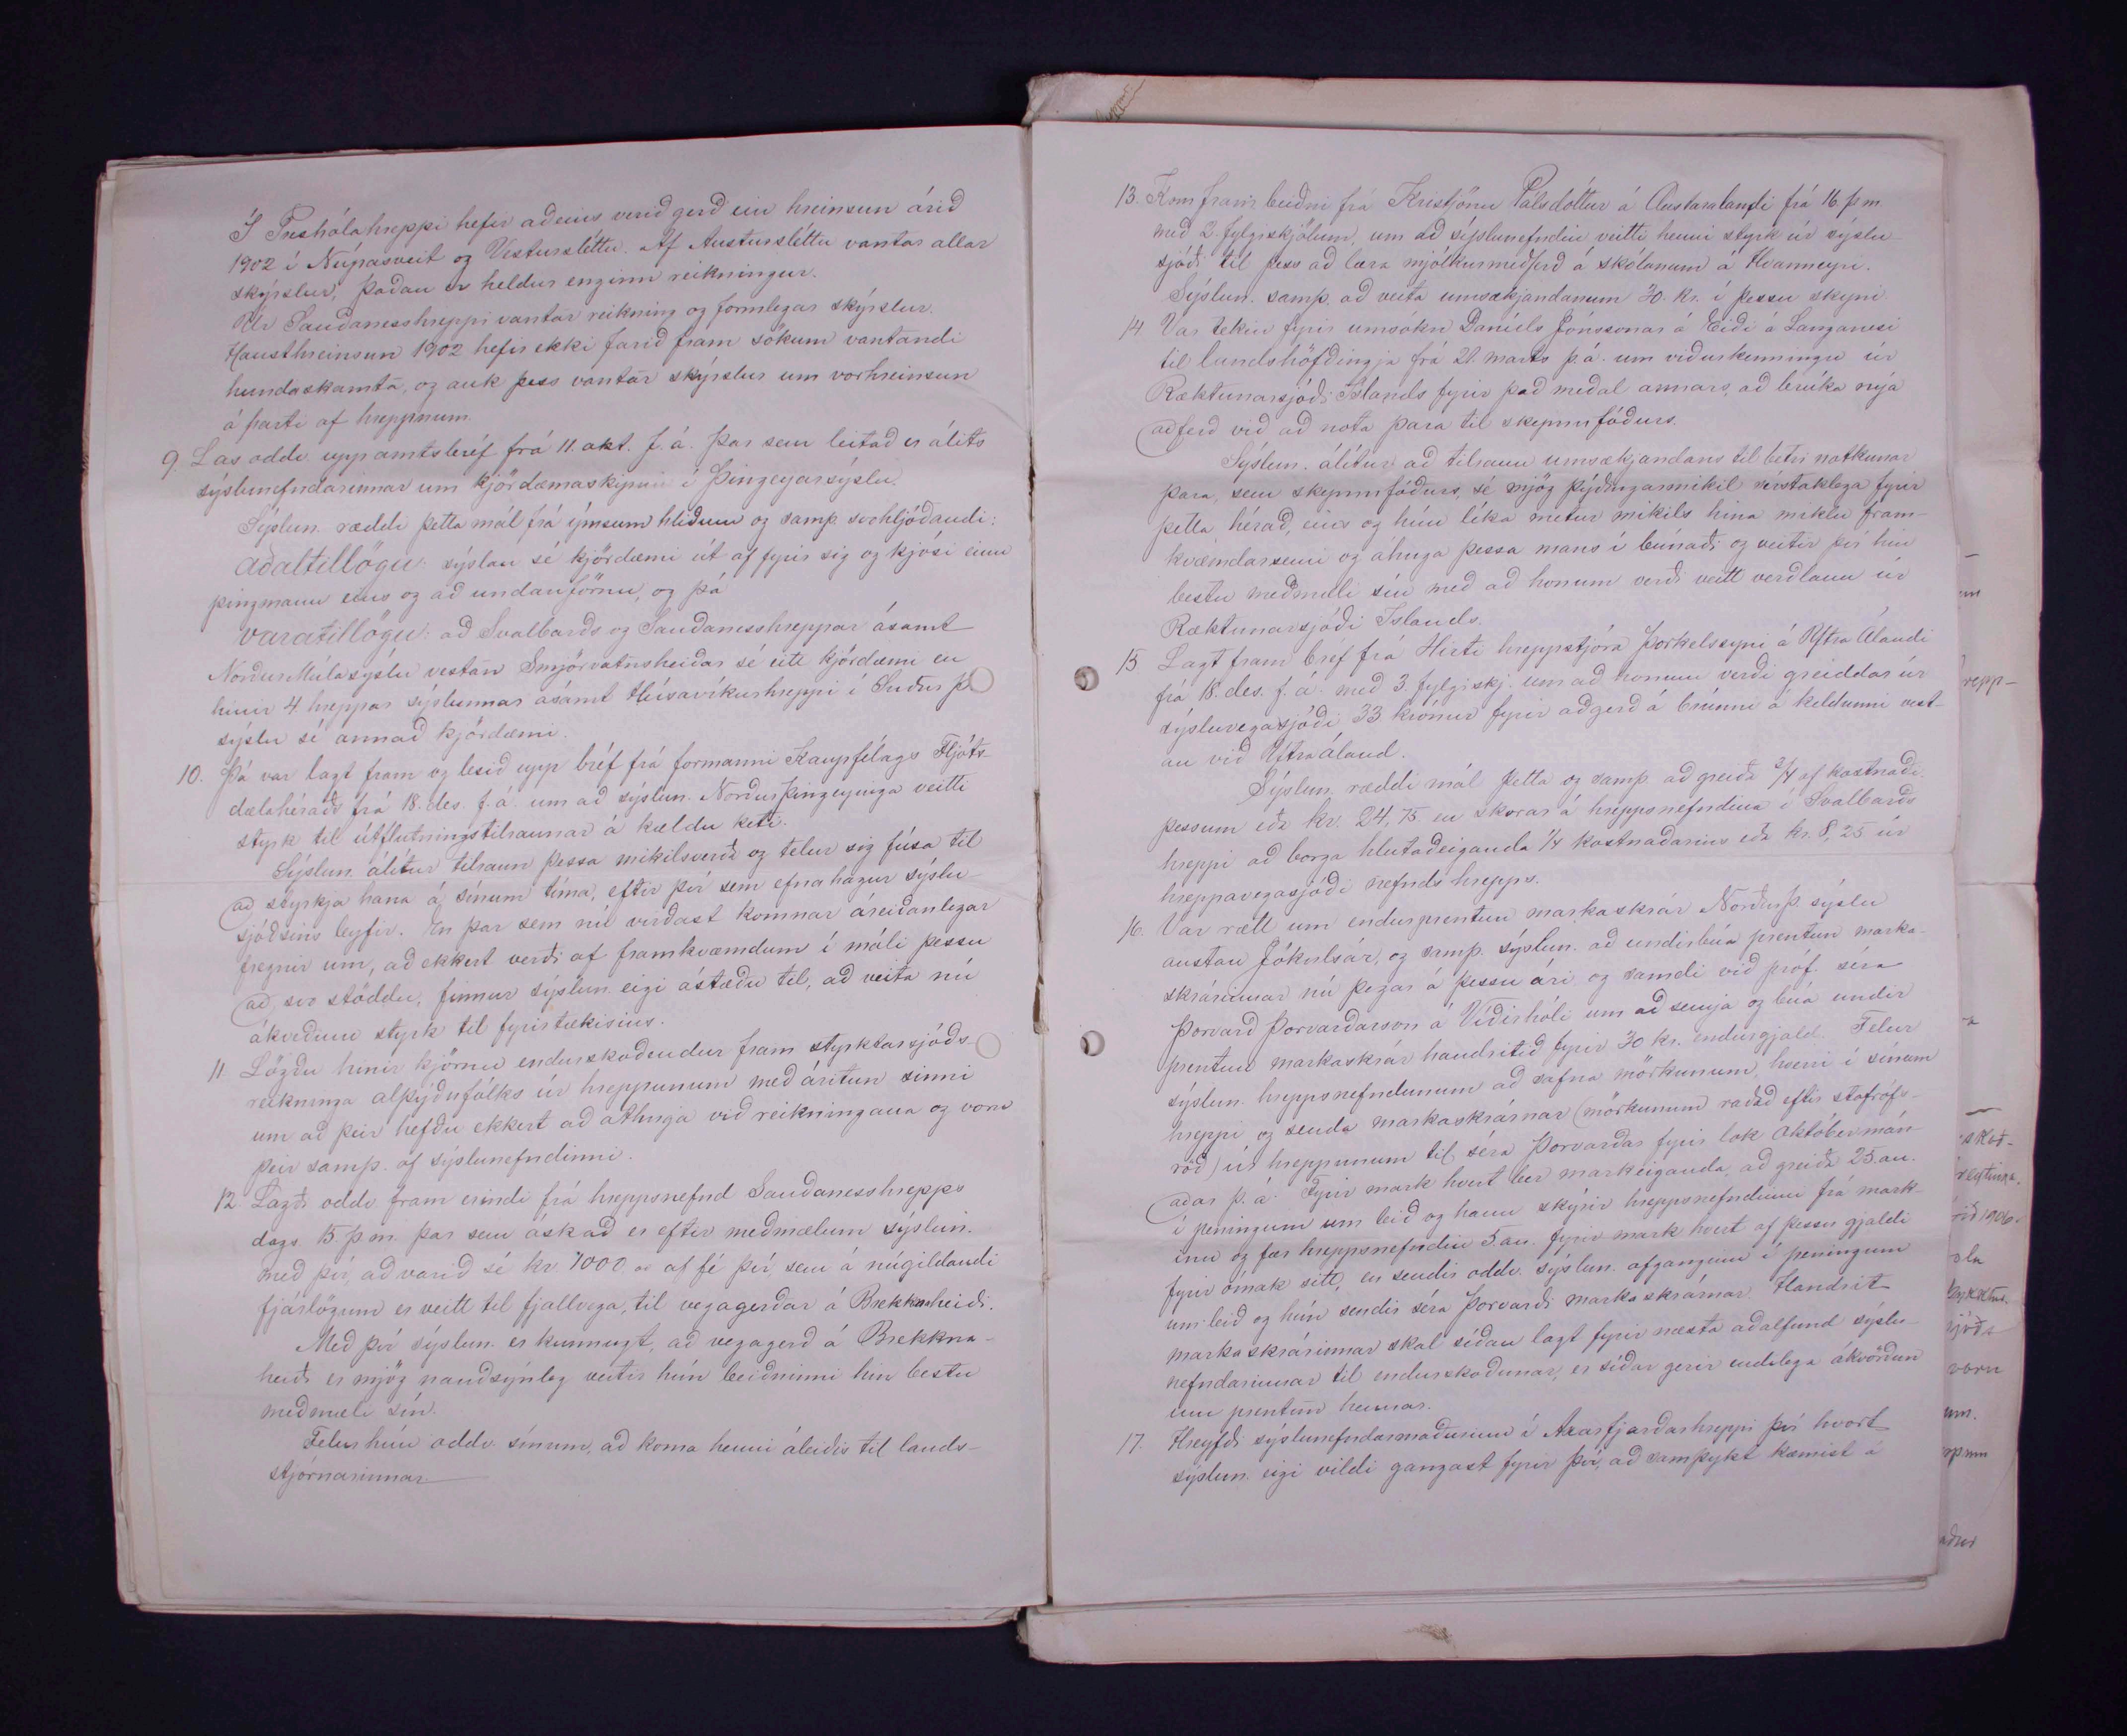 Í Presthólahreppi hefir aðeins verið gerð ein hreinsun árið
1902 í Núpasveit og Vestursléttu. Af Austursléttu vantar allar
skýrslur, þaðan er heldur enginn reikningur.
Úr Sauðanesshreppi vantar reikning og formlegar skýrslur.
Hausthreinsun 1902 hefir ekki farið fram sökum vantandi
hundaskamta, og auk þess vantar skýrslur um vorhreinsun
á parti af hreppnum.
9. Las oddv. upp amtsbréf frá 11. okt. f. á. þar sem leitað er álits
sýslunefndarinnar um kjördæmaskipun í Þingeyarsýslu.
Sýslun. ræddi þetta mál frá ýmsum hliðum og samp. svohljóðandi:
aðaltillögu: sýslan sé kjördæmi út af fyrir sig og kjósi einn
þingmann eins og að undanförnu, og þá
varatillögu: að Svalbarðs og Sauðanesshreppar ásamt
Norður Múlasýslu vestan Smjörvatnsheiðar sé eitt kjördæmi en
hinir 4 hreppar sýslunnar ásamt Húsavíkurhreppi í Suður Þ.
sýslu sé annað kjördæmi.
10. Þá var lagt fram og lesið upp bréf frá formanni Kaupfélags Fljóts-
dælahéraðs frá 18. des. f. á. um að sýslun. Norður Þingeyinga veitti
styrk til útflutningstilraunar á kældu keti.
Sýslun. álítur tilraun þessa mikilsverða og telur sig fúsa til
að styrkja hana á sínum tíma, eftir því sem efnahagur sýslu-
sjóðsins leyfir. En þar sem nú virðast komnar áreiðanlegar
fregnir um, að ekkert verði af framkvæmdum í máli þessu
að svo stöddu, finnur sýslun. eigi ástæðu til, að veita nú
ákveðinn styrk til fyrirtækisins.
11. Lögðu hinir kjörnu endurskoðendur fram styrktarsjóðs-
reikninga alþýðufólks úr hreppunum með áritun sinni
um að þeir hefðu ekkert að athuga við reikningana og voru
þeir samp. af sýslunefndinni.
12. Lagði oddv. fram erindi frá hreppsnefnd Sauðanesshrepps
dags. 15. þ. m. þar sem óskað er eftir meðmælum sýslun.
með því, að varið sé kr. 1000 af fé því, sem á núgildandi
fjárlögum er veitt til fjallvega, til vegagerðar á Brekknaheiði.
Með því sýslun. er kunnugt, að vegagerð á Brekkna-
heiði er mjög nauðsýnleg veitir hún beiðninni hin bestu
meðmæli sín.
Felur hún oddv. sínum, að koma henni áleiðis til lands-
stjórnarinnar.
13. Kom fram beiðni frá Kristjönu Pálsdóttur á Austaralandi frá 16. þ m.
með 2 fylgiskjölum, um að sýslunefndin veitti henni styrk úr sýslu-
sjóði til þess að læra mjólkurmeðferð á skólanum á Hvanneyri.
Sýslun. samp. að veita umsækjandanum 30. kr. í þessu skyni.
14 Var tekin fyrir umsókn Daníels Jónssonar á Eiði á Langanesi
til landshöfðingja frá 21. marts þ. á. um viðurkenningu úr
Ræktunarsjóði Íslands fyrir það meðal annars, að brúka nýja
aðferð við að nota þara til skepnufóðurs.
Sýslun. álítur að tilraun umsækjandans til betri notkunar
þara, sem skepnufóðurs, sé mjög þýðingarmikil sérstaklega fyrir
þetta hérað, eins og hún líka metur mikils hina miklu fram-
kvæmdarsemi og áhuga þessa mans í búnaði og veitir því hin
bestu meðmæli sín með að honum verði veitt verðlaun úr
Ræktunarsjóði Íslands.
15 Lagt fram bréf frá Hirti hreppstjóra Þorkelssyni á Ytra Álandi
frá 18. des. f. á. með 3. fylgiskj. um að honum verði greiddar úr
sýsluvegasjóði 33 krónur fyrir aðgerð á brúnni á keldunni vest-
an við Ytraáland.
Sýslun. ræddi mál þetta og samp. að greiða 3/4 af kostnaði
þessum eða kr. 24,75. en skorar á hreppsnefndina í Svalbarðs
hreppi að borga hlutaðeiganda 1/4 kostnaðarins eða kr. 8,25 úr
hreppavegasjóði nefnds hrepps.
16. Var rætt um endurprentun markaskrár Norðurþ. sýslu
austan Jökulsár, og samp. sýslun. að undirbúa prentun marka-
skrárinnar nú þegar á þessu ári og samdi við próf. séra
Þorvarð Þorvarðarson á Víðirhóli um að semja og búa undir
prentun markaskrár handritið fyrir 30 kr. endurgjald. Felur
sýslun. hreppsnefndunum að safna mörkunum, hverri í sínum
hreppi og senda markaskrárnar (mörkunum raðað eftir stafrófs-
röð) úr hreppunum til séra Þorvarðar fyrir lok októbermán-
aðar þ. á. Fyrir mark hvert ber markeiganda að greiða 25 au.
í peningum um leið og hann skýrir hreppsnefndinni frá mark-
inu og fær hreppsnefndin 5 au. fyrir mark hvert af þessu gjaldi
fyrir ómak sitt, en sendir oddv. sýslun. afganginn í peningum
um leið og hún sendir séra Þorvarði markaskrárnar. Handrit
markaskrárinnar skal síðan lagt fyrir næsta aðalfund sýslu-
nefndarinnar til endurskoðunar, er síðar gerir endilega ákvörðun
um prentun hennar.
17. Hreyfði sýslunefndarmaðurinn í Axarfjarðarhreppi því hvort
sýslun. eigi vildi gangast fyrir því, að samþykt kæmist á